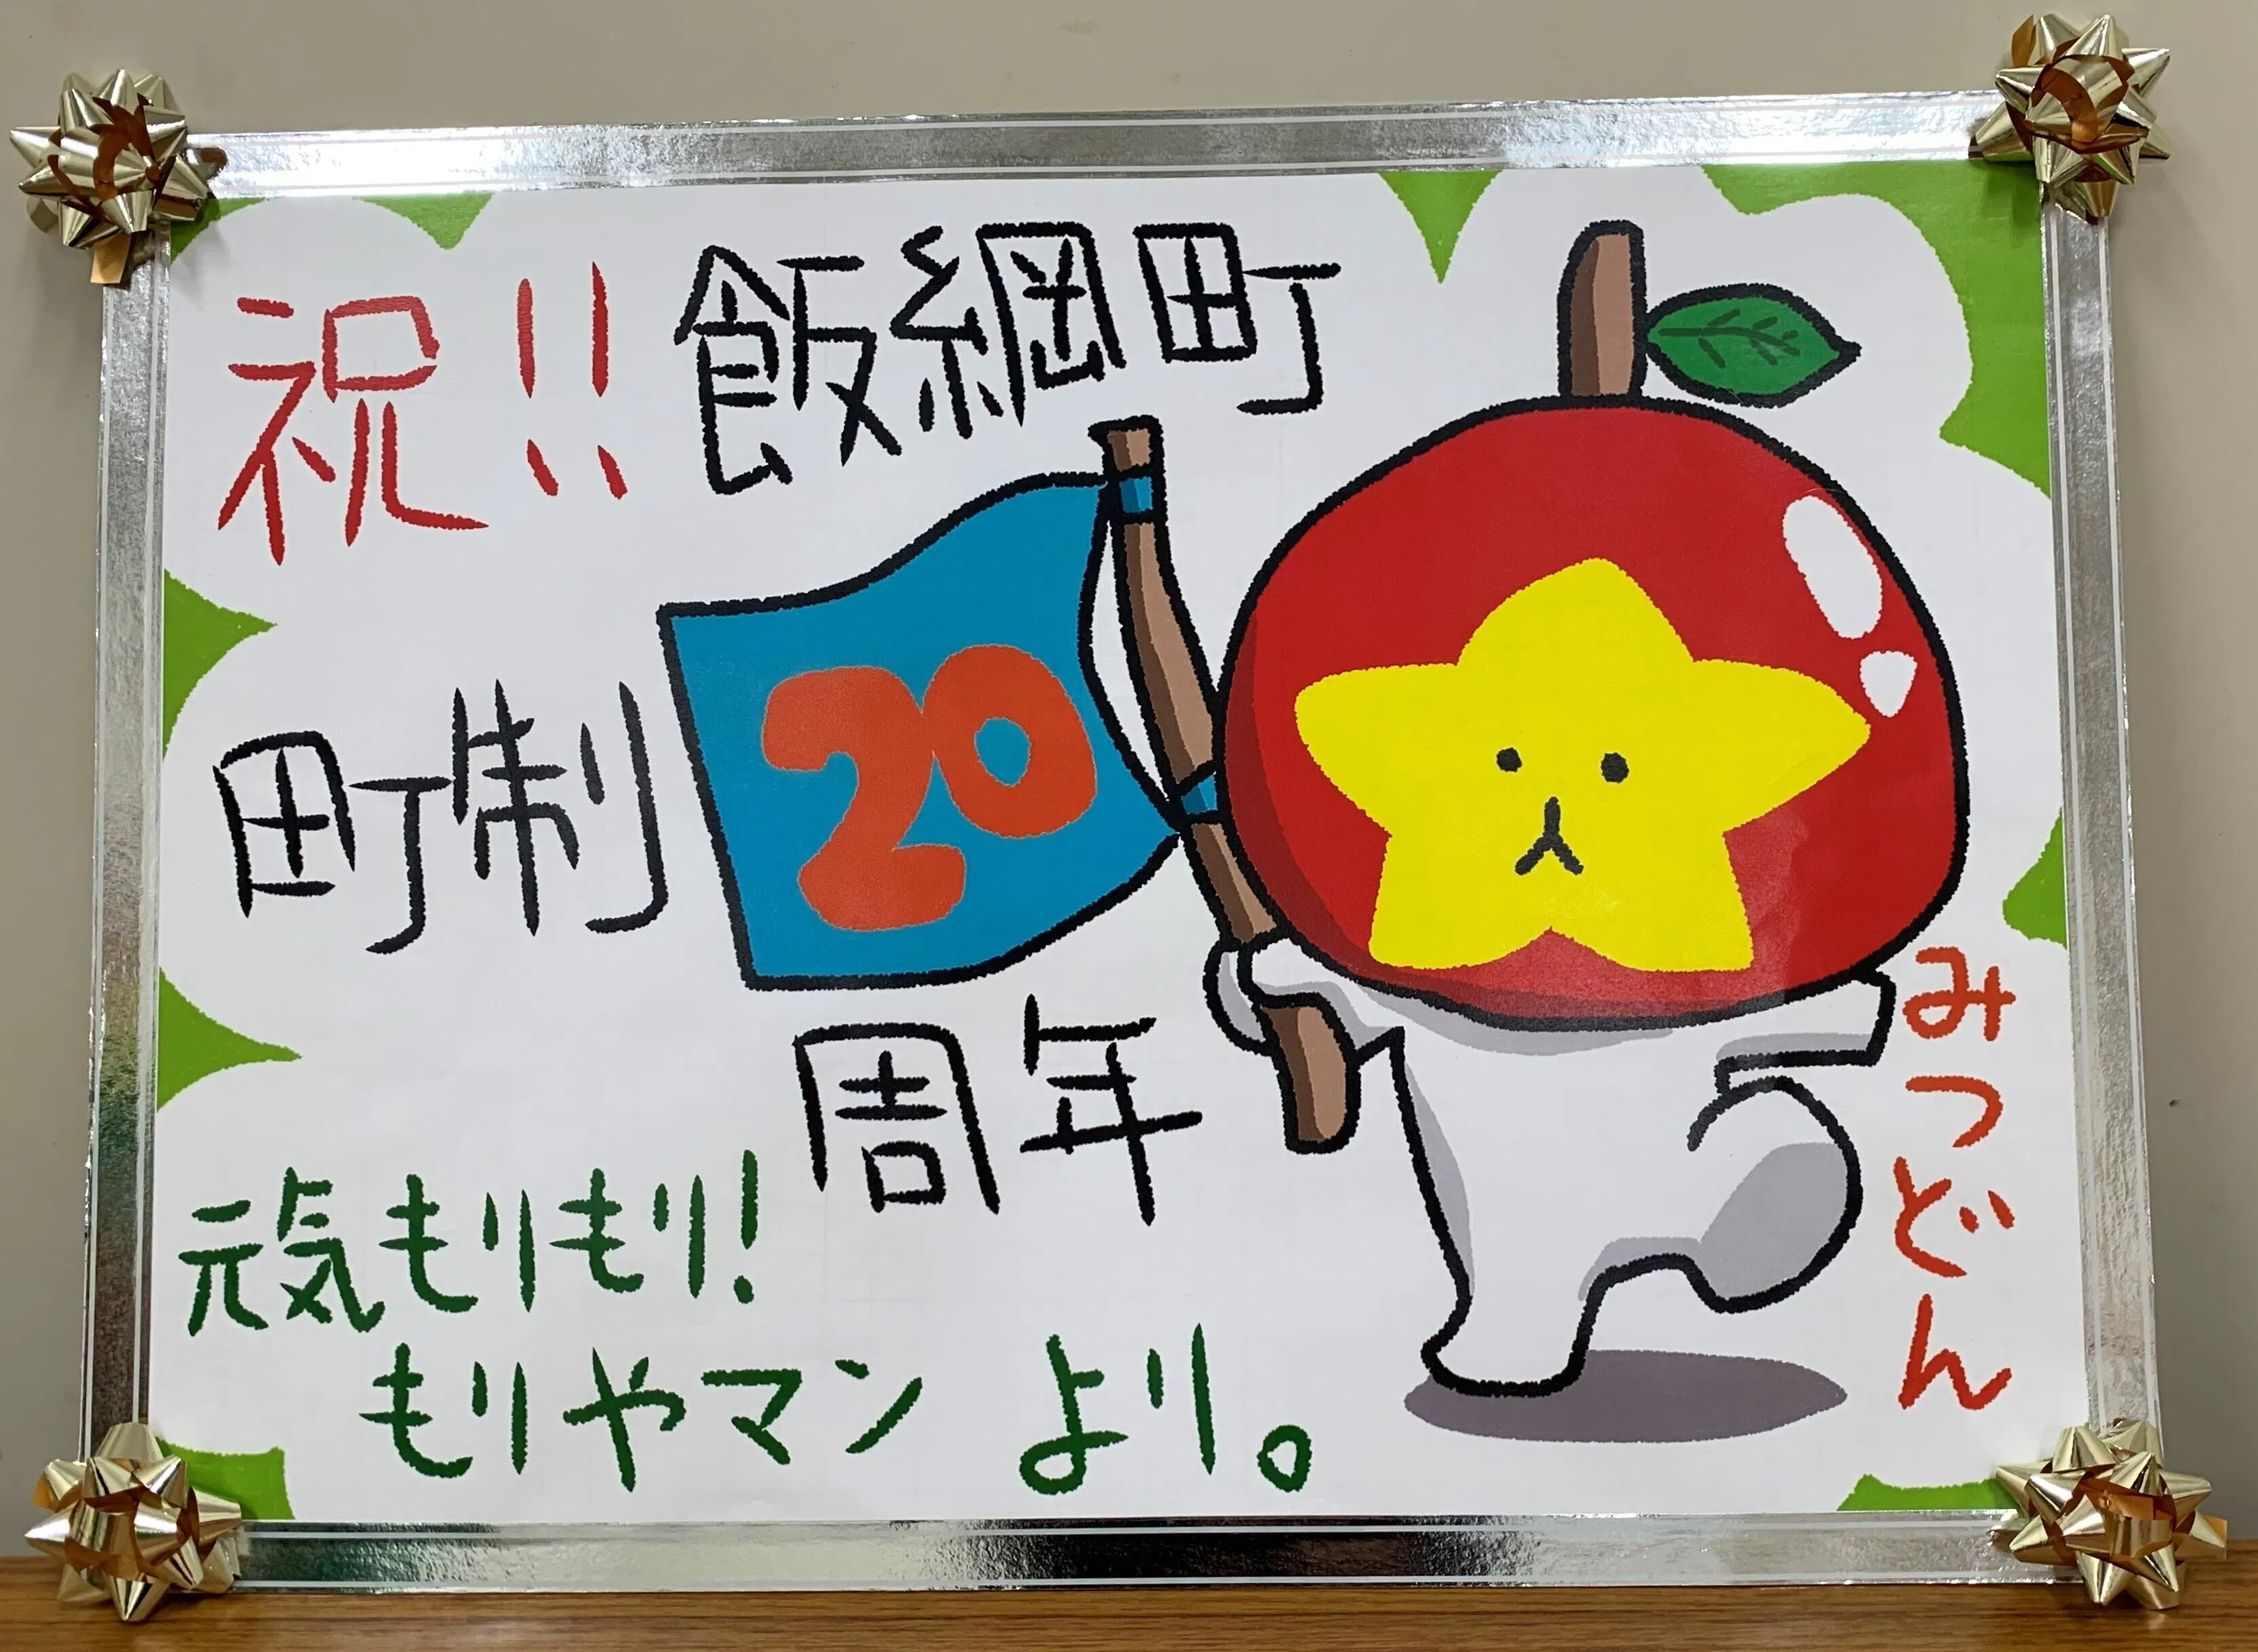 祝!!
飯綱町
町制
20
周年
みつどん
元気もりもり!
もりやマン より。